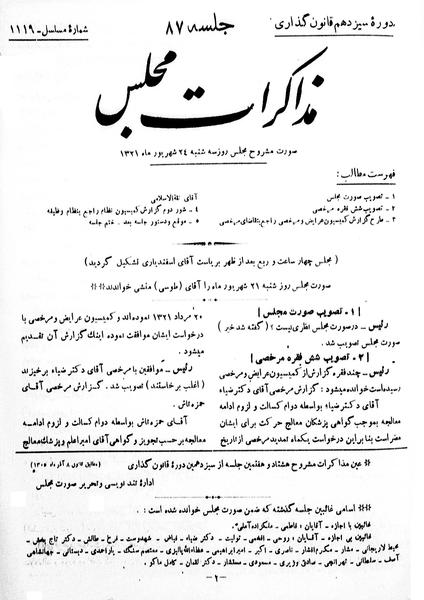 دورهٔ سیزدهم قانون گذاری
جلسه ۸۷
شمارهٔ مسلسل - ۱۱۱۹
مذاکرات مجلس
صورت مشروح مجلس روز سه شنبه ۲۴ شهریور ماه ۱۳۲۱
فهرست مطالب:
۱ - تصویب صورت مجلس
۲ - تصویب شش فقره مرخصی
۳ - طرح گزارش کمیسیون عرایض و مرخصی راجع بتقاضای مرخصی
آقای ثقةالاسلامی
۴ - شور دوم گزارش کمیسیون نظام راجع بنظام وظیفه
۵ - موقع و دستور جلسه بعد - ختم جلسه
(مجلس چهار ساعت و ربع بعد از ظهر بریاست آقای اسفندیاری تشکیل گردید)
صورت مجلس روز شنبه ۲۱ شهریور ماه را آقای (طوسی) منشی خواندند
[۱ - تصویب صورت مجلس]
رئیس - در صورت مجلس نظری نیست؟ (گفته شد خیر)
صورت مجلس تصویب شد.
[۲ - تصویب شش فقره مرخصی]
رئیس - چند فقره گزارش از کمیسیون عرایض و مرخصی
رسیده است خوانده میشود: گزارش مرخصی آقای دکتر ضیاء
آقای دکتر ضیاء بواسطه دوام کسالت و لزوم ادامه
معالجه بموجب گواهی پزشکان معالج حرکت برای ایشان
مضر است بنا براین درخواست یکماه تمدید مرخصی از تاریخ
۲۰ مرداد ۱۳۲۱ نموده‌اند و کمیسیون عرایض و مرخصی با
درخواست ایشان موافقت نموده اینک گزارش آن تقدیم
میشود.
رئیس - موافقین با مرخصی آقای دکتر ضیاء برخیزند
(اغلب برخاستند) تصویب شد. گزارش مرخصی آقای
حمزه تاش.
آقای حمزه تاش بواسطه دوام کسالت و لزوم ادامه
معالجه بر حسب تجویز و گواهی آقای امیراعلم پزشک معالج
عین مذاکرات مشروح هشتاد و هفتمین جلسه از سیزدهمین دورهٔ قانون گذاری
(مطابق قانون ۸ آذر ماه ۱۳۰۵)
ادارهٔ تند نویسی و تحریر صورت مجلس
اسامی غائبین جلسه گذشته که ضمن صورت مجلس خوانده شده است:
غائبین با اجازه - آقایان: فاطمی - ملکزاده آملی
غائبین بی اجازه - آقایان: روحی - افخمی - تولیت - دکتر ضیاء - فیاض - شهدوست - فرخ - طالش - دکتر تاج بخش -
محیط لاریجانی - مشار - مکرم افشار - ناصری - اکبر - امیرابراهیمی - معتصم سنگ - یار احمدی - دبستانی - جهانشاهی
آصف - سلطانی - تهرانچی - صادق وزیری - مسعودی - سمشار - دکتر لقمان - کامل ماکو.
- ۱ -